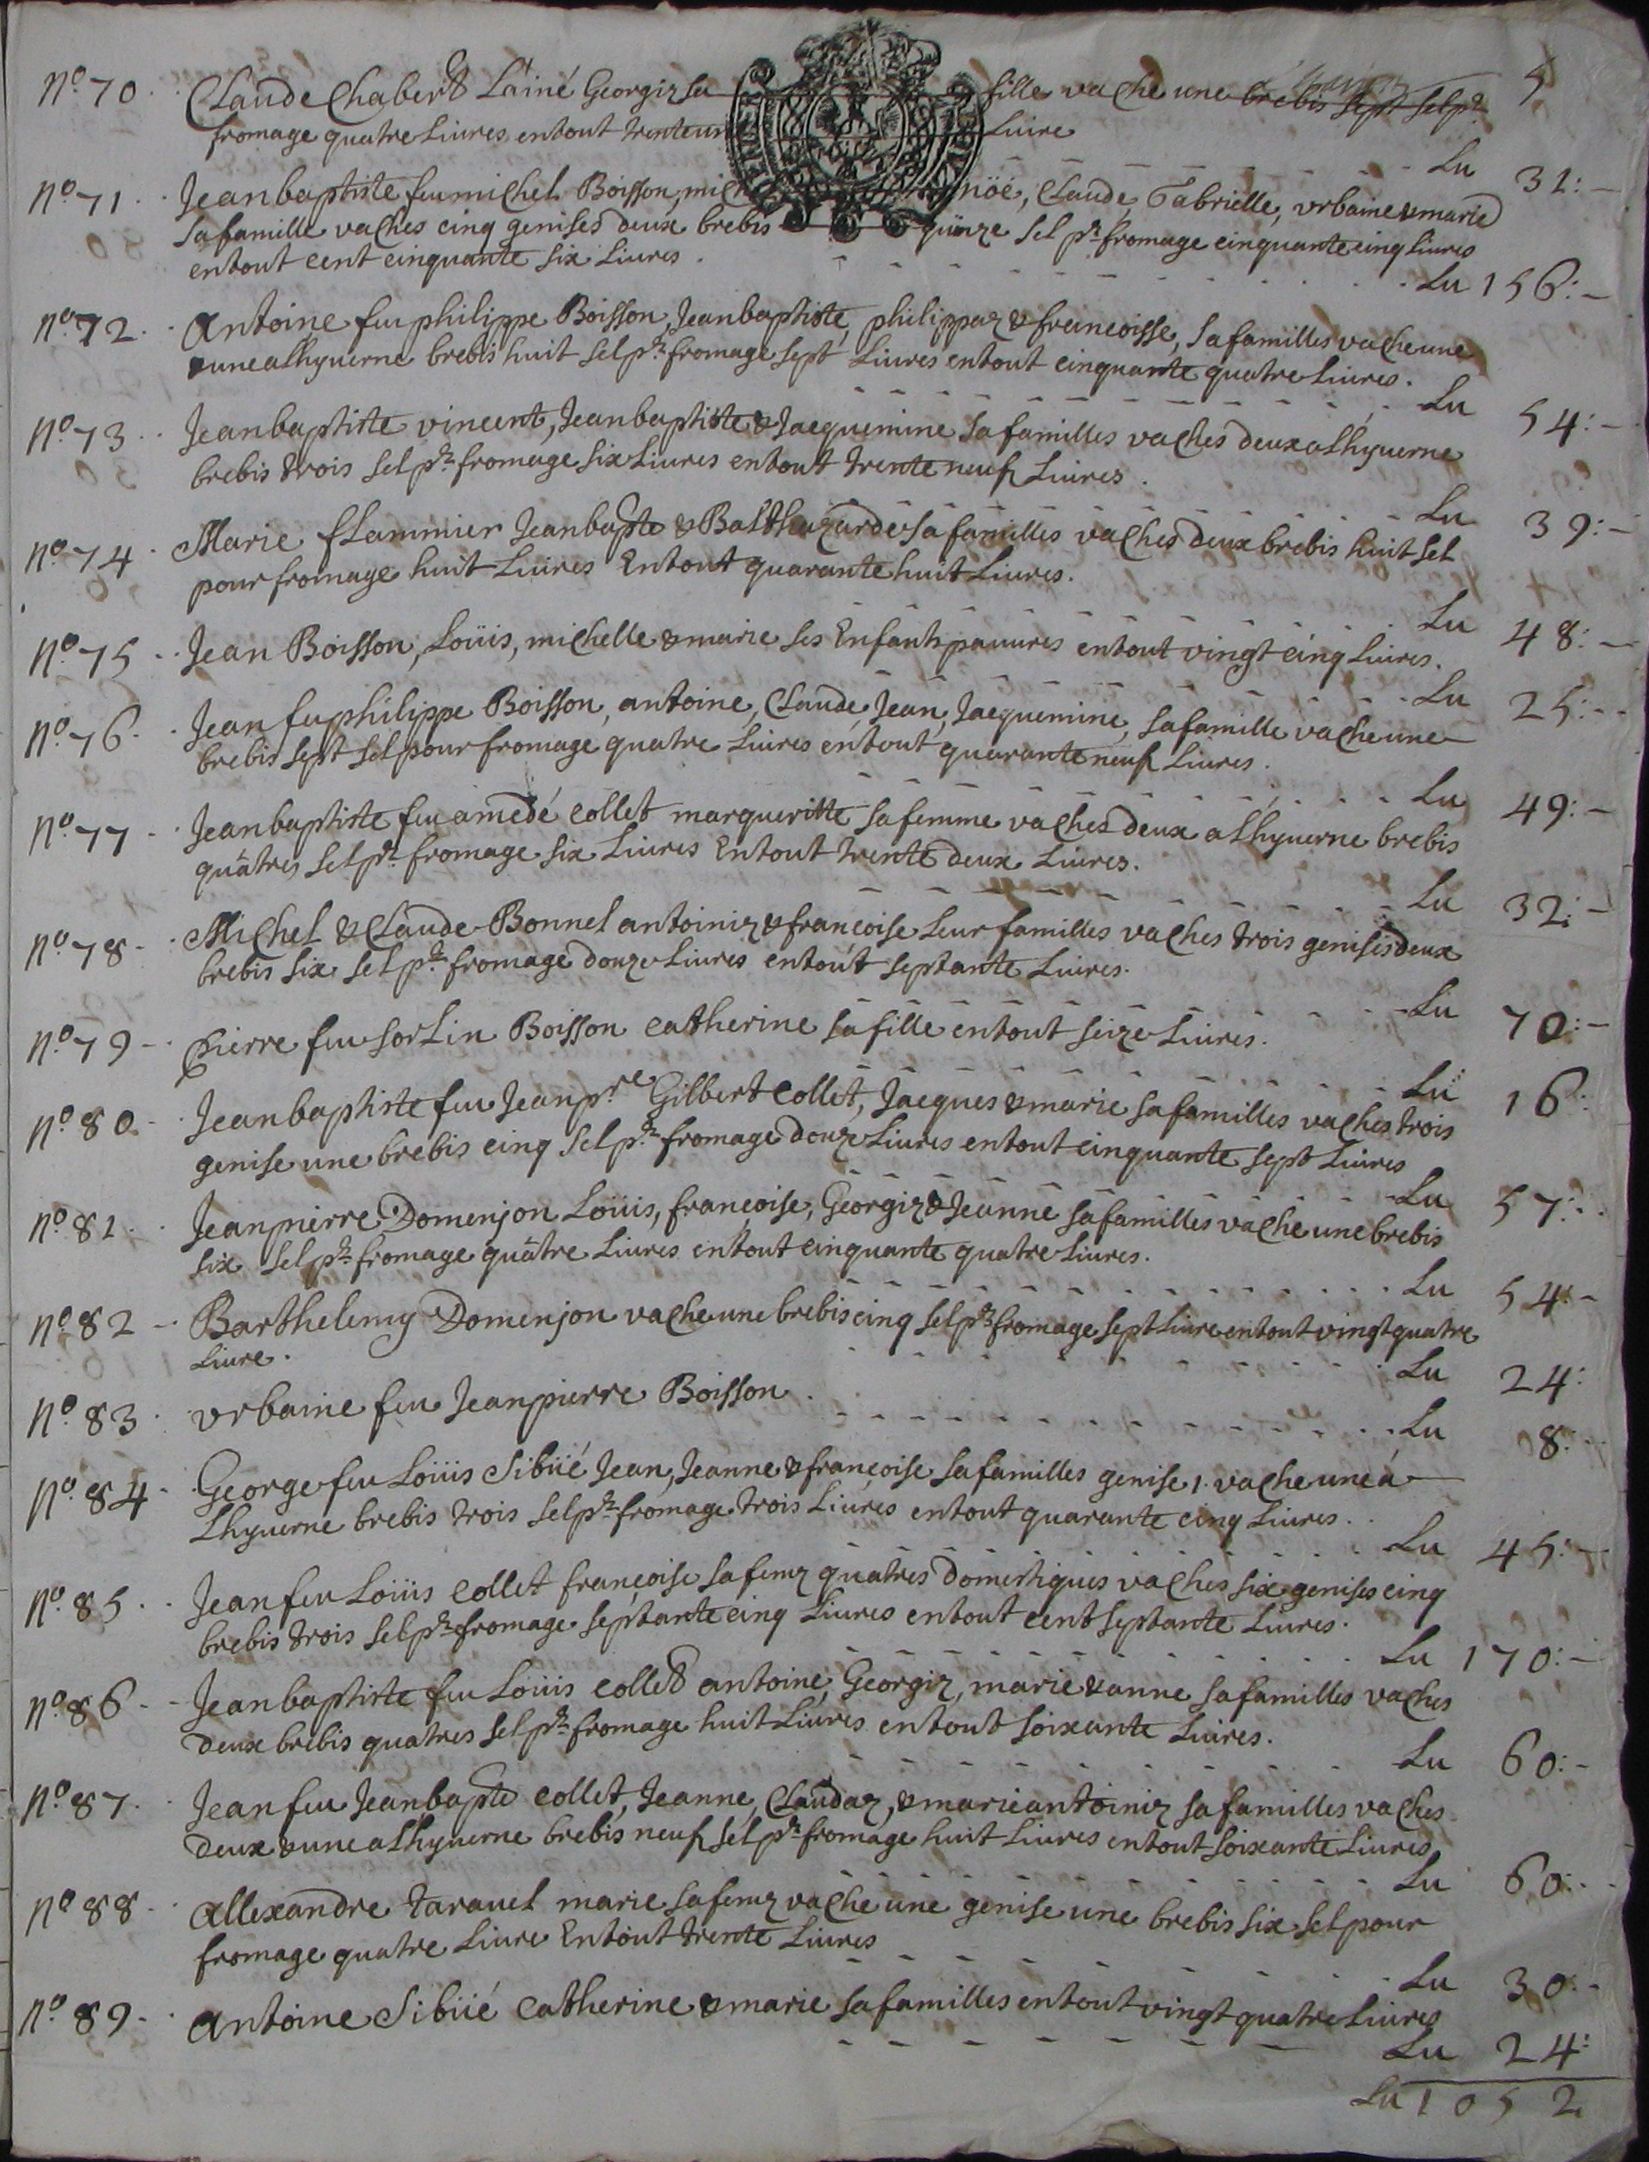 n.o 70 Claude Chabert L'ainé Georgiz sa fille vache une brebis sept selp.r 5
fromage quatre Liures entout trente un Liure
Lu 31:
n.o 71 Jeanbaptiste feu michel Boisson, noé, Claude, Gabrielle, vrbaine & marie
safamille vaches cinq genises deux brebis quinze sel p.r fromage cinquante cinq Liures
entout cent cinquante six Liures.
Lu 156:
n.o 72 Antoine feu philippe Boisson, Jeanbaptiste, philippaz & francoisse, safamilles vache une
& une alhyuerne brebis huit selp.r fromage sept Liures entout cinquante quatre Liures.
Lu 54:
n.o 73 Jeanbaptiste vincent, Jeanbaptiste & Jacquemine safamilles vaches deux alhyuerne
brebis trois selp.r fromage six Liures entout trente neuf Liures.
Lu 39:
n.o 74 Marie fLammier Jeanbapte & Balthazarde safamilles vaches deux brebis huit sel
pour fromage huit Liures Entout quarante huit Liures.
Lu 48:
n.o 75 Jean Boisson, Loüis, michelle & marie ses Enfants pauures entout vingt cinq Liures.
Lu 25:
n.o 76 Jean feu philippe Boisson, antoine, Claude, Jean, Jacquemine, safamille vache une
brebis sept sel pour fromage quatre Liures entout quarante neuf Liures.
Lu 49:
n.o 77 Jeanbaptiste feu amedé collet margueritte safemme vaches deux alhyuerne brebis
quâtres selp.r fromage six Liures Entout trente deux Liures.
Lu 32:
n.o 78 Michel & Claude Bonnel antoiniz & francoise Leur familles vaches trois genises deux
brebis six selp.r fromage douze Liures entout septante Liures.
Lu 70:
n.o 79 Pierre feu sorlin Boisson catherine sa fille entout seize Liures.
Lu 16:
n.o 80 Jeanbaptiste feu Jean p.re Gilbert collet, Jacques & marie safamilles vaches trois
genise une brebis cinq selp.r fromage douze Liures entout cinquante sept Liures
Lu 57:
n.o 81 Jeanpierre Domenjon Loüis, françoise, Georgiz & Jeanne safamilles vache une brebis
six selp.r fromage quâtre Liures entout cinquante quatre Liures.
Lu 54:
n.o 82 Barthelemy Domenjon vache une brebis cinq selp.r fromage sept Liure entout vingt quatre
Liure.
Lu 24:
n.o 83 vrbaine feu Jeanpierre Boisson
Lu 8:
n.o 84 George feu Loüis Sibüé Jean, Jeanne & françoise safamilles genise 1. vache une á
Lhyuerne brebis trois selp.r fromage trois Liures entout quarante cinq Liures.
Lu 45:
n.o 85 Jean feu Loüis collet françoise safemz quatres Domestiques vaches six genises cinq
brebis trois selp.r fromage septante cinq Liures entout cent septante Liures.
Lu 170:
n.o 86 Jeanbaptiste feu Loüis collet antoine, Georgiz, marie & anne safamilles vaches
Deux brebis quatres selp.r fromage huit Liures entout soixante Liures.
Lu 60:
n.o 87 Jean feu Jeanbapte collet, Jeanne, Claudaz, & marieantoiniz safamilles vaches
Deux & une alhyuerne brebis neuf selp.r fromage huit Liures entout soixante Liures
Lu 60:
n.o 88 Allexandre taravel marie safemz vache une genise une brebis six sel pour
fromage quatre Liure Entout trente Liures
Lu 30:
n.o 89 Antoine Sibüé catherine & marie safamilles entout vingt quatre Liures
Lu 24:
Lu 1052